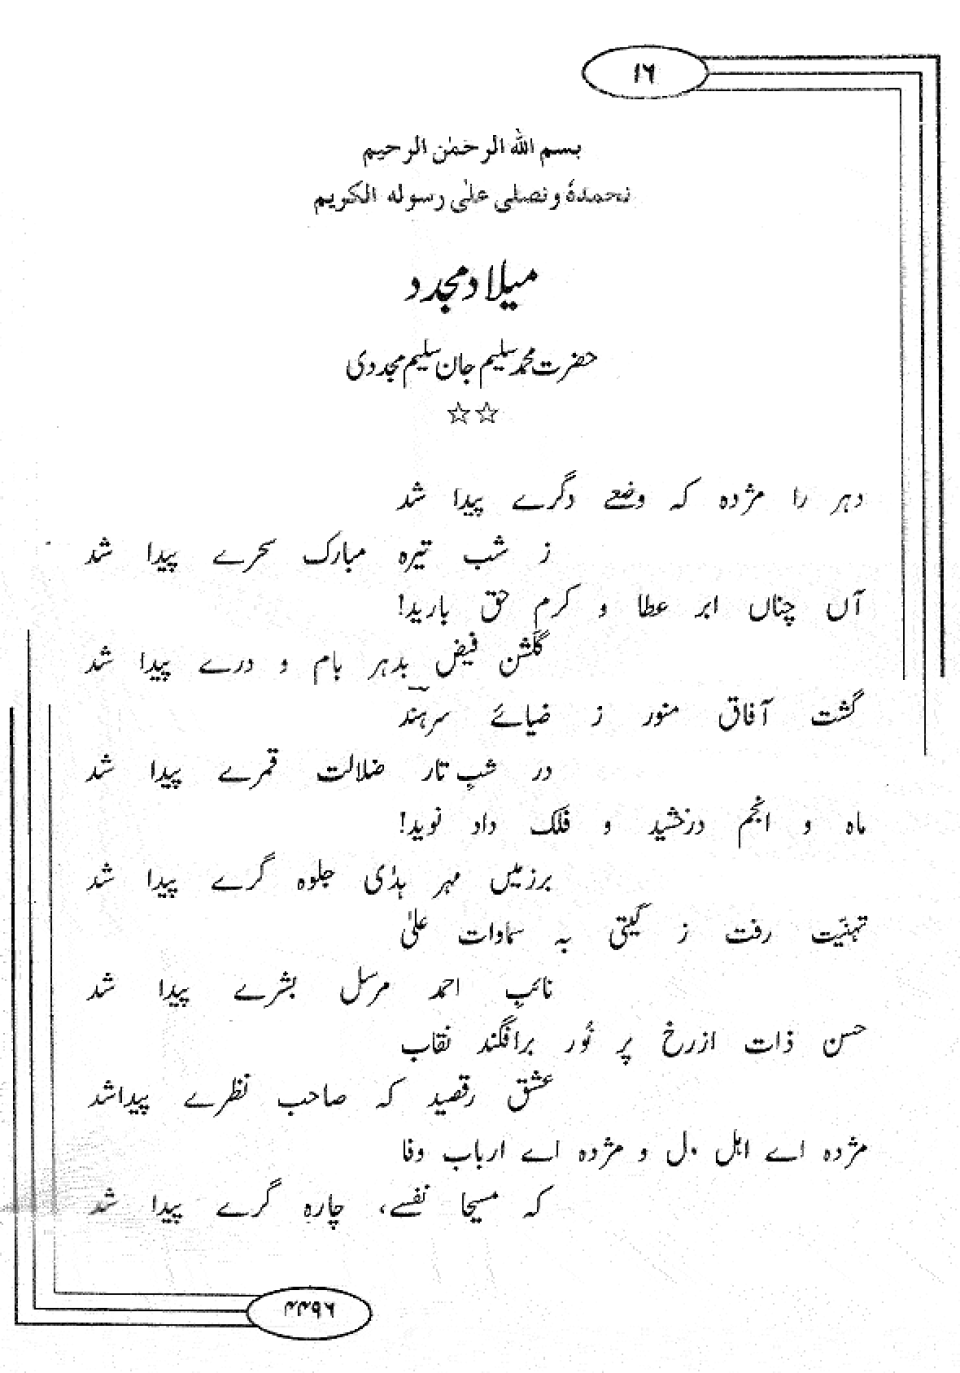 ۱۶
بسم الله الرحمٰن الرحیم
نحمدہٗ و نصلی علیٰ رسولہ الکریم
میلاد مجدد
حضرت محمد سلیم جان سلیم مجددی
☆☆
دہر را مژدہ کہ وضعے دگرے پیدا شد
ز شب تیرہ مبارک سحرے پیدا شد
آں چناں ابر عطا و کرمِ حق بارید!
گلشنِ فیض بدہر بام و درے پیدا شد
گشت آفاق منور ز ضیائے سرہند
در شبِ تار ضلالت قمرے پیدا شد
ماہ و انجم درخشید و فلک داد نوید!
برزمیں مہر ہدٰی جلوہ گرے پیدا شد
تہنیت رفت ز گیتی بہ سماوات علیٰ
نائبِ احمد مرسل بشرے پیدا شد
حسن ذات ازرخ پر نُور برافگند نقاب
عشق رقصید کہ صاحب نظرے پیداشد
مژدہ اے اہل دل و مژدہ اے ارباب وفا
کہ مسیحا نفسے، چارہ گرے پیدا شد
۴۴۹۶